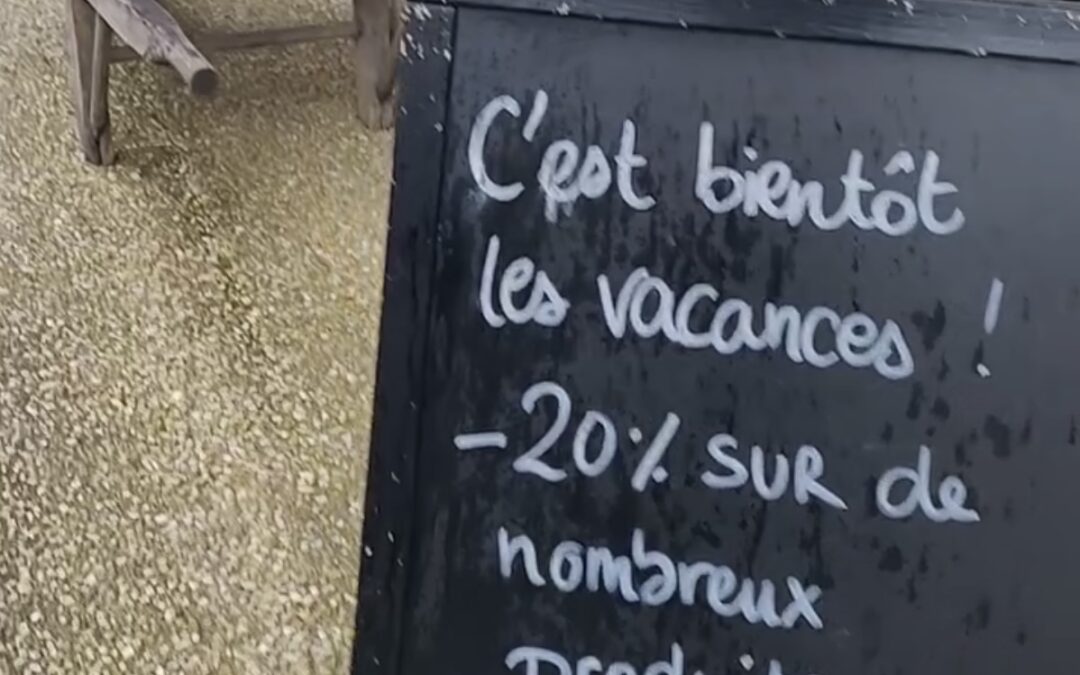 C'est bientôt
les vacances !
-20% SUR de
nombreux